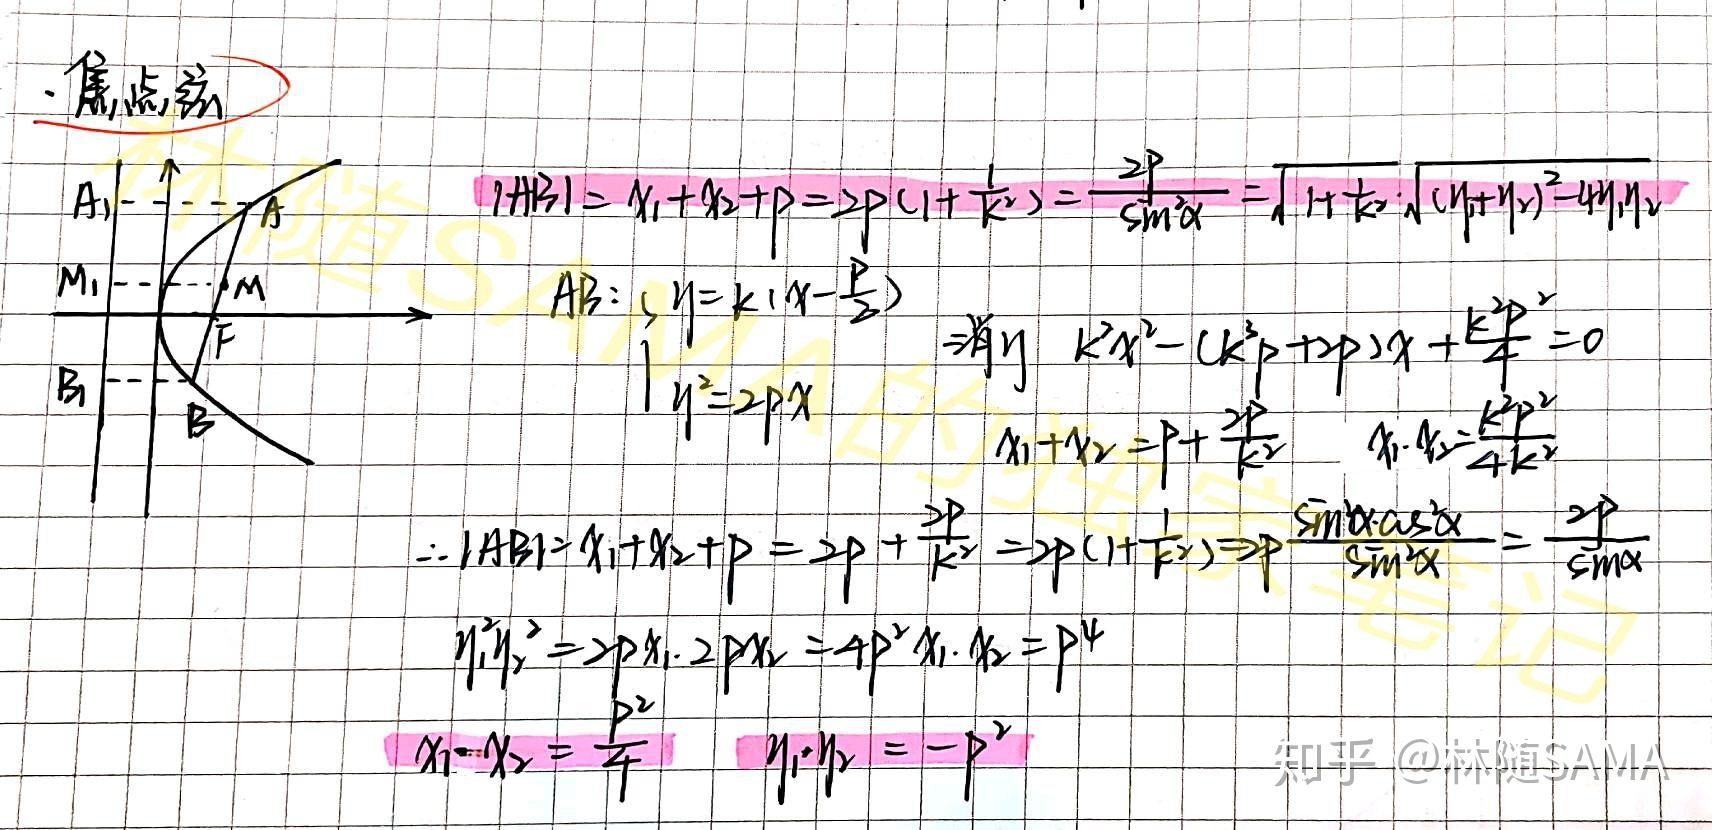 ·焦点弦
A₁ A
M₁ M
F
B₁
B
|AB| = x₁+x₂+p = 2p(1+1/k²) = 2p/sin²α = √(1+1/k²)·√((y₁+y₂)²-4y₁y₂)
AB: { y=k(x-p/2)
y²=2px
⇒消y k²x²-(k²p+2p)x+k²p²/4=0
x₁+x₂=p+2p/k² x₁·x₂=k²p²/4k²
∴|AB|=x₁+x₂+p=2p+2p/k²=2p(1+1/k²)=2p sin²α·cos²α/sin²α=2p/sinα
y₁²y₂²=2px₁·2px₂=4p²x₁·x₂=p⁴
x₁·x₂=p²/4 y₁·y₂=-p²
林随SAMA的独家笔记
知乎 @林随SAMA